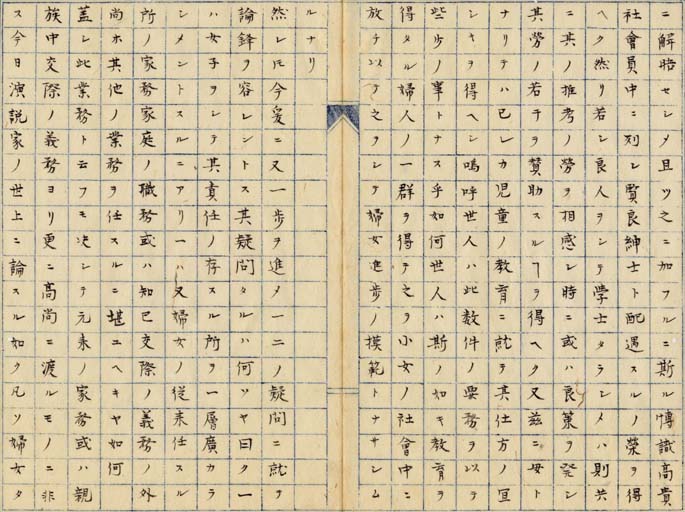 ニ解晤セシメ且ツ之ニ加フルニ斯ル博識高貴
社會員中ニ列シ賢良紳士ト配遇スルノ榮ヲ得
ヘク然リ若シ良人ヲシテ學士タランメハ則共
ニ其ノ推考ノ勞ヲ相感シ時ニ或ハ良策ヲ発シ
其勞ノ若干ヲ賛助スルヿヲ得ヘク又玆ニ母ト
ナリテハ已レカ児童ノ教育ニ就テ其仕方ノ宜
シキヲ得ヘシ嗚呼世人ハ此数件ノ要務ヲ以テ
些歩ノ事トナス乎如何世人ハ斯ノ如キ教育ヲ
得タル婦人ノ一群ヲ得テ之ヲ小女ノ社會中ニ
放チ以テ之ヲシテ婦女進歩ノ摸範トナサシム
ルナリ
然レ𪜈今爰ニ又一歩ヲ進メ一二ノ疑問ニ就ヲ
論鋒ヲ容レントス其疑問タルハ何ソヤ曰ク一
ハ女子ヲシテ其責任ノ存スル所ヲ一層廣カラ
シメントスルニアリ一ハ又婦女ノ従来任スル
所ノ家務家庭ノ職務或ハ知已交際ノ義務ノ外
尚ホ其他ノ業務ヲ任スルニ堪ユヘキヤ如何
蓋シ此業務ト云フモ决シテ元来ノ家務或ハ親
族中交際ノ義務ヨリ更ニ高尚ニ渡ルモノニ非
ス今日演説家ノ世上ニ論スル如ク凡ソ婦女タ